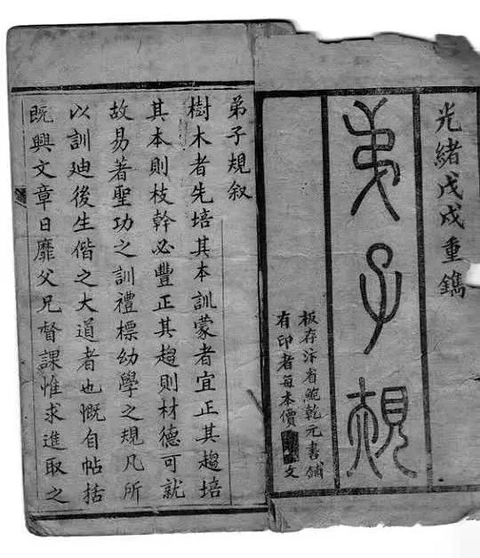 光緒戊戌重鐫
弟子規
板存汴省鮑乾元書鋪
有印者每本價文
弟子規叙
樹木者先培其本訓蒙者宜正其趨培
其本則枝幹必豐正其趨則材德可就
故易著聖功之訓禮標幼學之規凡所
以訓迪後生偕之大道者也慨自帖括
既興文章日靡父兄督課惟求進取之